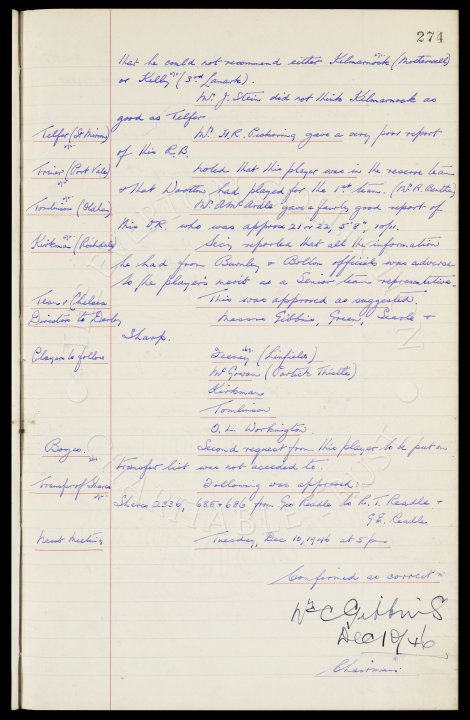 274
that he could not recommend either Kilmarnock (Motherwell)
or Kelly (3rd Lanark).
Mr. J. Stein did not think Kilmarnock as
good as Telfer
Telfer (St Mirren) Mr. H.R. Pickering gave a very poor report
of this R.B.
(Port Vale) noted that this player was in the reserve team
& that had played for the 1st team. (Mr R.
Tomlinson (Oldham) Mr. gave a fairly good report of
this I.R. who was approx 21 or 22, 5'8", 10/11.
Kirkman (Rochdale) Secy reported that all the information
he had from Burnley & Bolton officials was adverse
to the player's merit as a Senior team representative.
Team v Chelsea This was approved as suggested.
Directors to Derby Messrs Gibbins, Green, Searle &
Sharp.
Players to follow Feeney (Linfield)
McGowan (Partick Thistle)
Kirkman
Tomlinson
O.L. Workington.
Boyes. Second request from this player to be put on
transfer list was not acceded to.
Transfer of Shares Following was approved:
Shares 2336, 685 & 686 from Geo Readle to R. T. Readle &
G.E. Readle
Next Meeting Tuesday, Dec 10, 1946 at 5 pm
Confirmed as correct
Wm C Gibbins
Dec 10/46
Chairman.